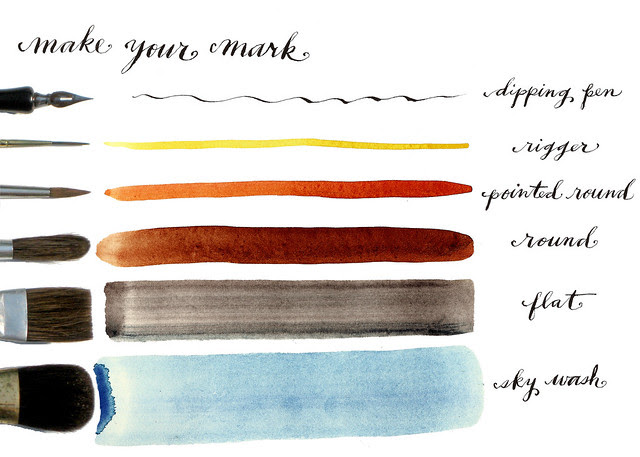 make your mark
dipping pen
rigger
pointed round
round
flat
sky wash